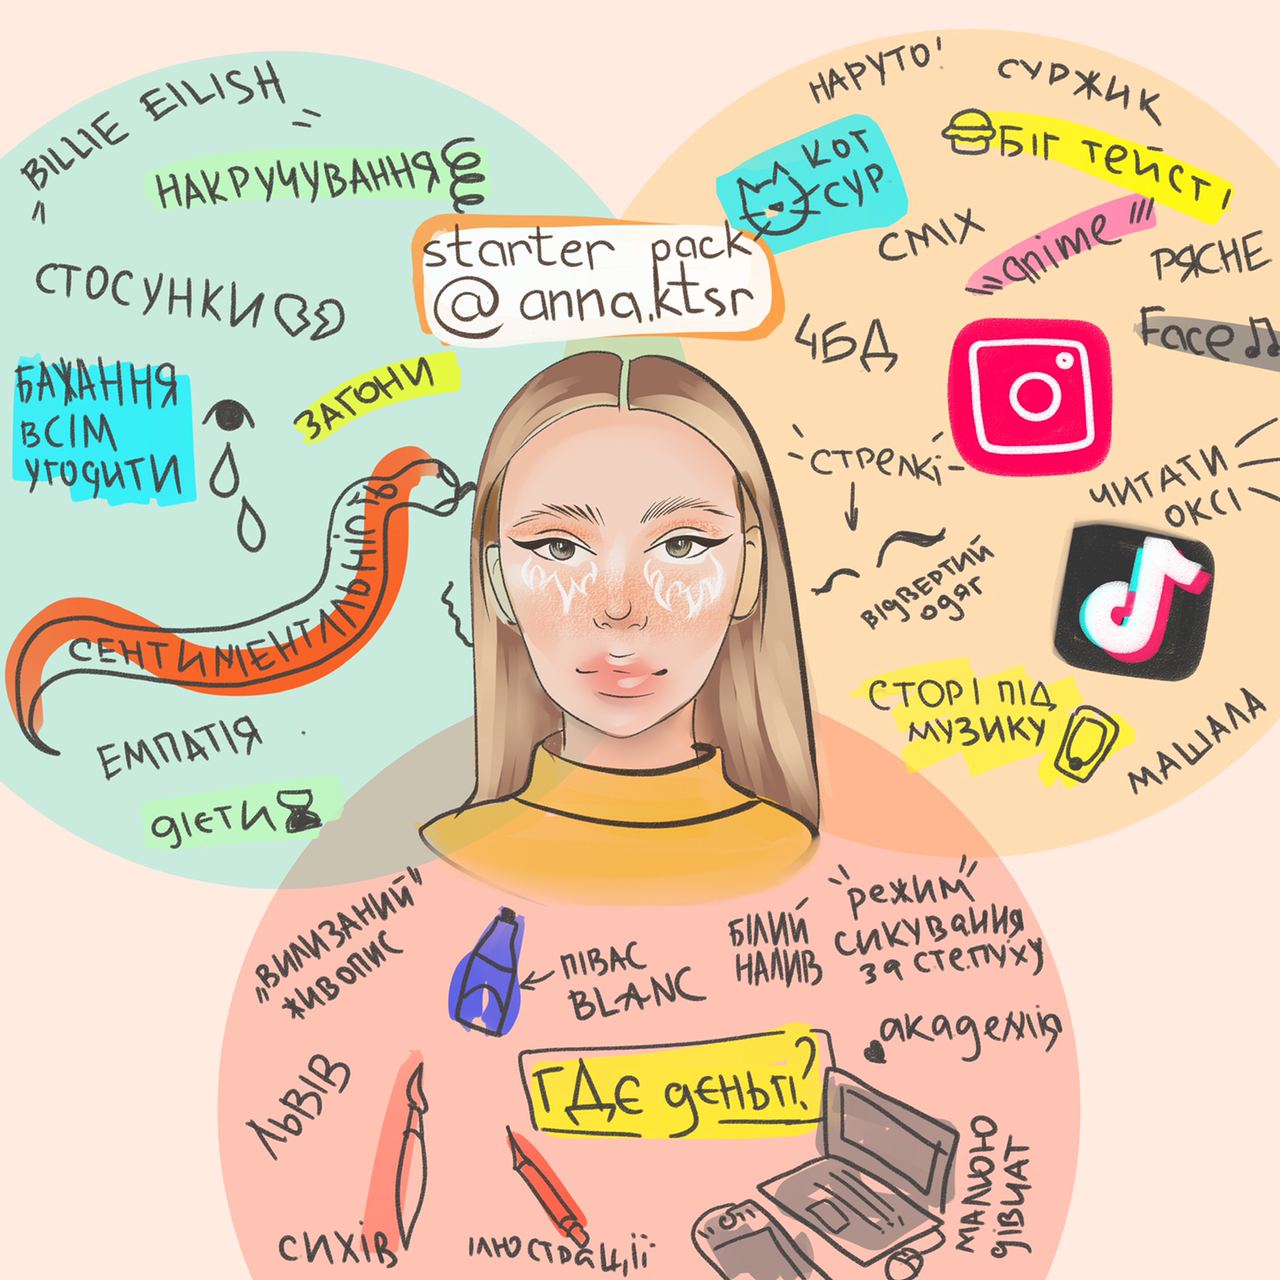 "BILLIE EILISH"
НАКРУЧУВАННЯ
starter pack
@anna.ktsr
СТОСУНКИ
БАЖАННЯ
ВСІМ
УГОДИТИ
ЗАГОНИ
СЕНТИМЕНТАЛЬНІСТЬ
ЕМПАТІЯ
дієти
НАРУТО!
СУРЖИК
КОТ
СУР
БІГ ТЕЙСТІ
СМІХ
anime
РЯСНЕ
ЧБД
Face
СТРЕЛКІ
ЧИТАТИ
ОКСІ
ВІДВЕРТИЙ
ОДЯГ
СТОРІ ПІД
МУЗИКУ
МАШАЛА
„ВИЛИЗАНИЙ"
ЖИВОПИС
ПІВАС
BLANC
БІЛИЙ
НАЛИВ
"режим"
СИКУВАННЯ
ЗА СТЕПУХУ
академія
ГДЄ дєньгі?
ЛЬВІВ
СИХІВ
ІЛЮСТРАЦІЇ
МАЛЮЮ
ДІВЧАТ